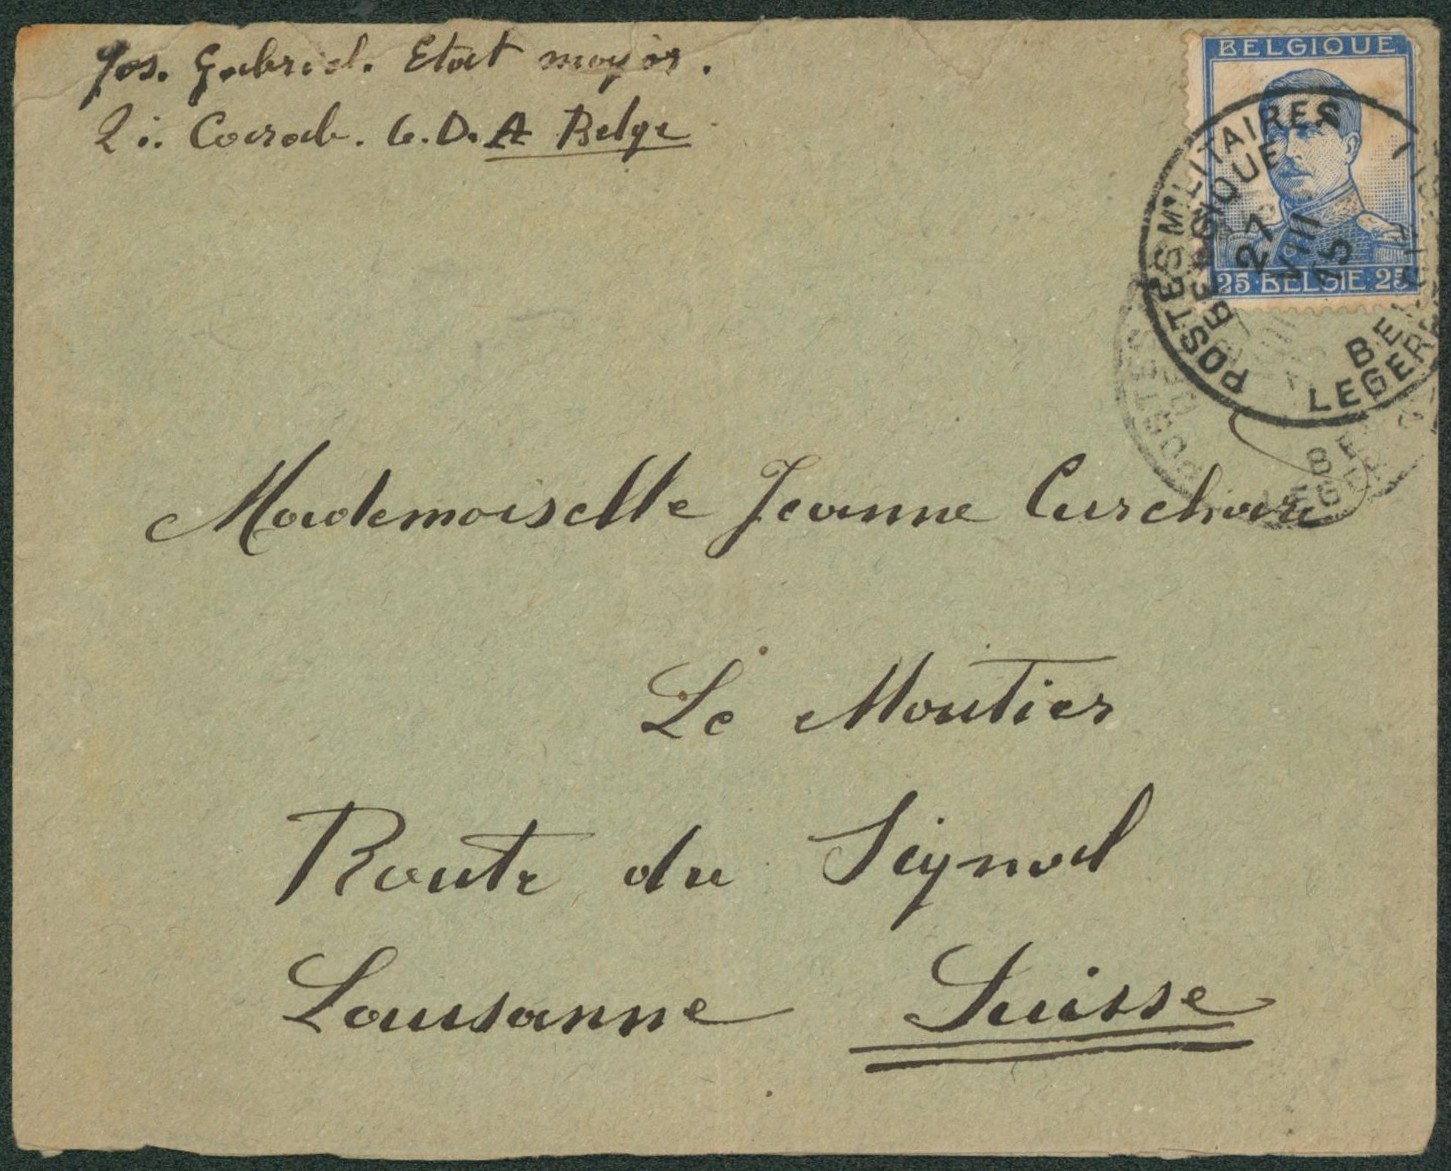 Jos. Gabriel. Etat major.
2 i. Carab. 6. D. A Belge
BELGIQUE
25 BELGIE 25
POSTES MILITAIRES
BELGIQUE
27
VIII
15
BEL
LEGERP
Mademoiselle Jeanne
Le Moutier
Route du Signal
Lausanne Suisse